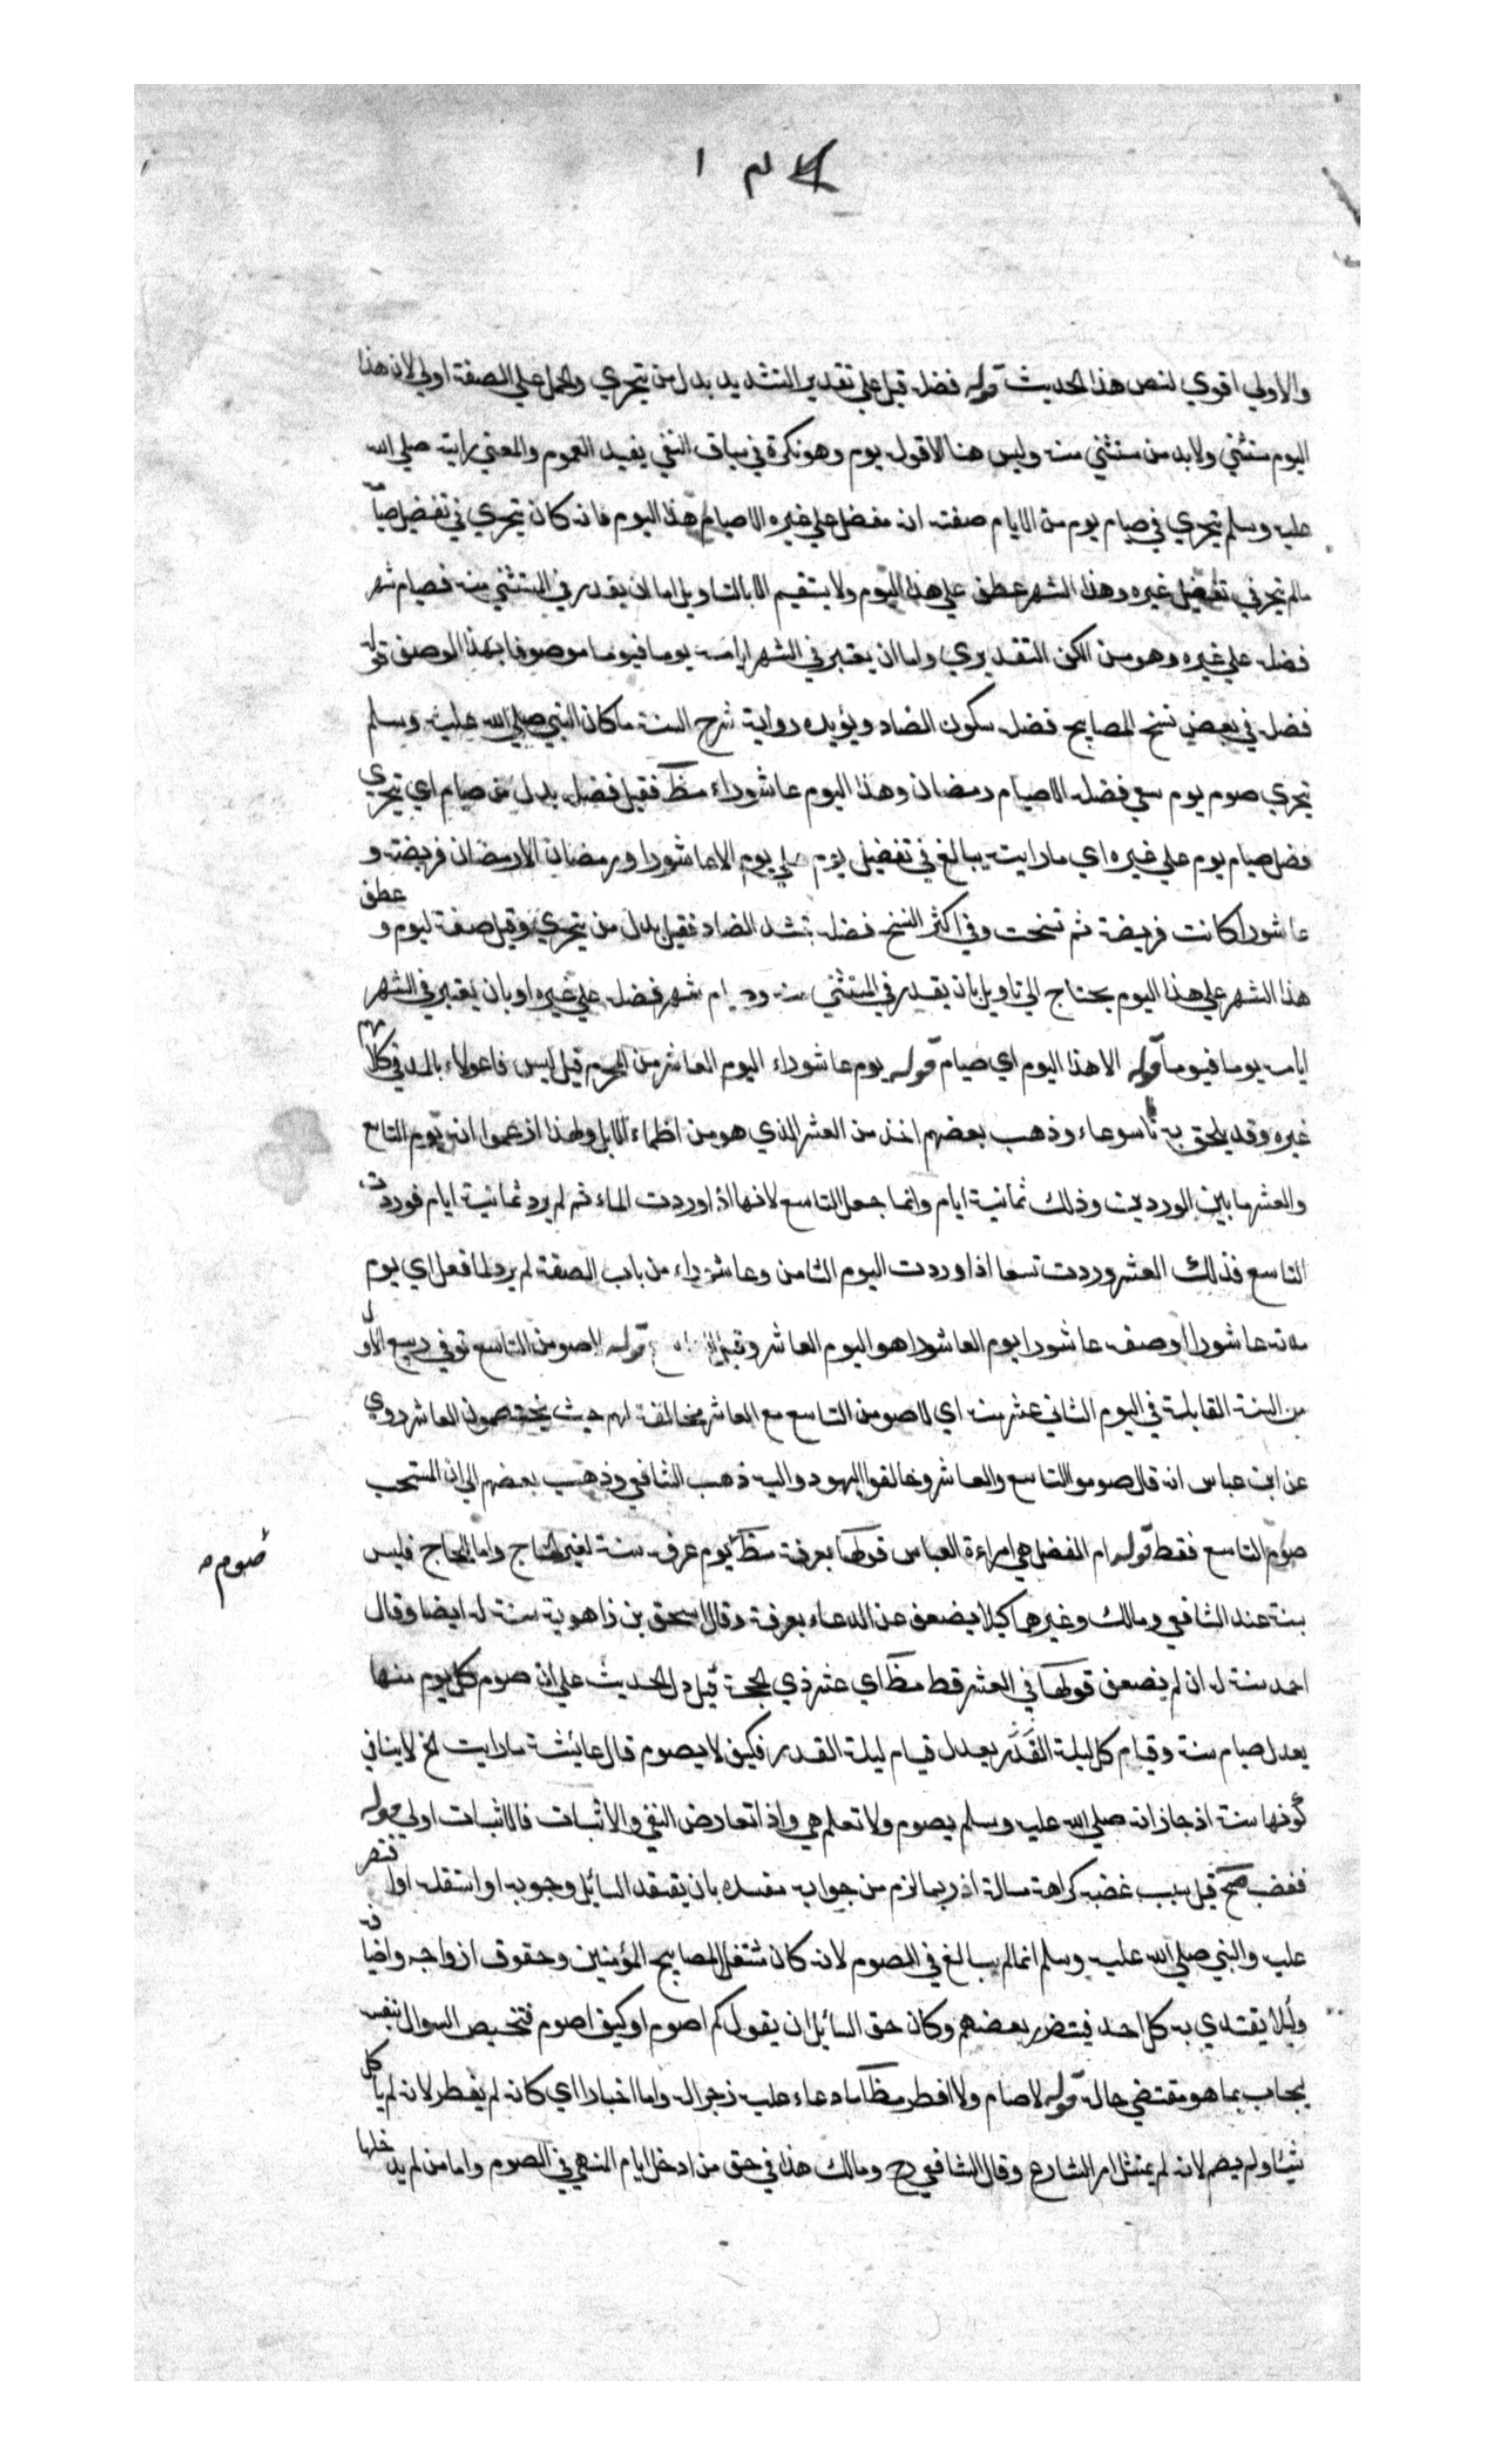 والاولي اقوي لنص هذا الحديث قوله فضله قيل علي تقدير التشديد بدل من يتحري والحمل علي الصفة اولي لان هذا
اليوم مستثني ولابد من مستثني منه وليس هنا الا قوله يوم وهو نكرة في سياق النفي يفيد العموم والمعني رايته صلي الله
عليه وسلم يتحري في صيام يوم من الايام صفته انه مفضل علي غيره الا صيام هذا اليوم فانه كان يتحري في تفضيل صيامه
مالم يتحر في تفضيل غيره وهذا الشهر عطف علي هذا اليوم ولا يستقيم الا بالتاويل اما ان يقدر في المستثني منه فصيام شهر
فضله علي غيره وهو من الكن التقديري واما ان يعتبر في الشهر ايامه يوما فيوما موصوفا بهذا الوصف قوله
فضله في بعض نسخ المصابيح فضله سكون الضاد ويؤيده رواية شرح السنة ماكان النبي صلي الله عليه وسلم
يتحري صوم يوم يبتغي فضله الا صيام رمضان وهذا اليوم عاشوراء مظ فقيل فضله بدل عن صيام اي يتحري
فضل صيام يوم علي غيره اي مارايته يبالغ في تفضيل يوم علي يوم الا عاشورا ورمضان الا رمضان فريضته و
عاشورا كانت فريضة ثم نسخت وفي اكثر النسخ فضله بتشد الضاد فقيل بدل من يتحري وقيل صفة ليوم و عطف
هذا الشهر علي هذا اليوم يحتاج الي تاويل بان يقدر في المستثني منه وصيام شهر فضله علي غيره او بان يعتبر في الشهر
ايامه يوما فيوما قوله الا هذا اليوم اي صيام قوله يوم عاشوراء اليوم العاشر من المحرم قيل ليس فاعولاء بالمد في كلامهم
غيره وقد يلحق به تاسوعاء وذهب بعضهم اخذ من العشر الذي هو من اظماء الابل ولهذا زعموا انه يوم التاسع
والعشر ما بين الوردين وذلك ثمانية ايام وانما جعل التاسع لانها اذا وردت الماء ثم لم يرد ثمانية ايام فوردت
التاسع فذلك العشر وردت تسعا اذا وردت اليوم الثامن وعاشوراء من باب الصفة لم يرد لها فعل اي يوم
مدته عاشورا او صفة عاشورا يوم العاشورا هو اليوم العاشر وقيل التاسع قوله لاصومن التاسع توفي ربيع الاول
من السنة القابلة في اليوم الثاني عشر منه اي لاصومن التاسع مع العاشر مخالفة لهم حيث يختصمون العاشر روي
عن ابن عباس انه قال صوموا التاسع والعاشر وخالفوا اليهود واليه ذهب الشافعي وذهب بعضهم الي ان المستحب
صوم التاسع فقط قوله ام الفضل هي امراءة العباس قولها بعرفة مظ يوم عرفه سنة لغير الحاج واما الحاج فليس
صوم
بسنة عند الشافعي ومالك وغيرهما كيلا يضعف عن الدعاء بعرفة وقال اسحق بن زاهوية سنة له ايضا وقال
احمد سنة له ان لم يضعف قولها في العشر قط مظ اي عشر ذي الحجة قيل دل الحديث علي ان صوم كل يوم منها
يعدل صيام سنة وقيام كل ليلة القدر يعدل قيام ليلة القدر فكيف لا يصوم قال عائشة مارايت الخ لاينافي
كونها سنة اذ جاز انه صلي الله عليه وسلم يصوم ولا تعلم هي واذا تعارض النفي والاثبات فالاثبات اولي قوله
فغضب صح قيل سبب غضبه كراهة مسالة اذ ربما لزم من جوابه مفسده بان يعتقد السائل وجوبه او استقله او اقتصر
عليه والنبي صلي الله عليه وسلم انما لم يبالغ في الصوم لانه كان مشتغل المصابيح المؤمنين وحقوق ازواجه واضيافه
وليلا يقتدي به كل احد فيتضرر بعضهم وكان حق السائل ان يقول كم اصوم او كيف اصوم فتخصيص السوال بنفسه
ليجاب بما هو مقتضي حاله قوله لا صام ولا افطر مظ اما دعاء عليه زجرا له واما اخبار اي كانه لم يفطر لانه لم ياكل
شيئا ولم يصم لانه لم يمتثل امر الشارع وقال الشافعي رح ومالك هذا في حق من ادخل ايام المنهي في الصوم واما من لم يدخلها